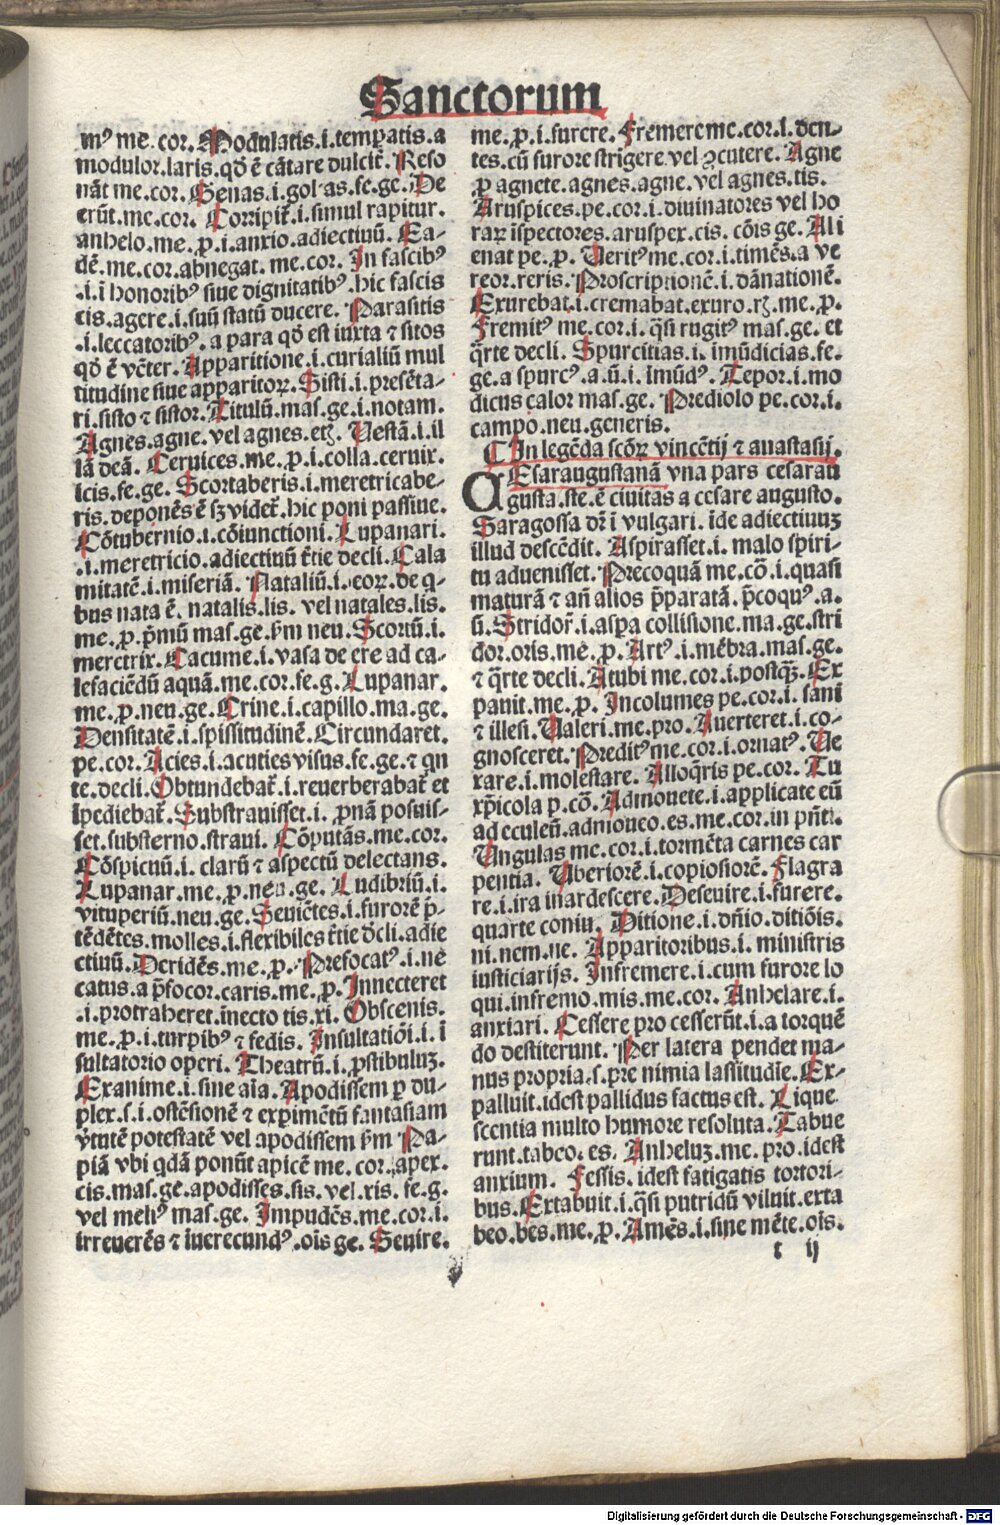 Sanctorum
mꝰ me. cor. Modulatis.i.temꝑatis.a
modulor.laris.qđ ē cātare dulcit᷑. Reso
nāt me.cor. Genas.i.golas.fe.ge. De
erūt.me.cor. Corripit᷑.i.simul rapitur.
anhelo.me.ꝑ.i.anxio.adiectiuū. Ea-
dē.me.cor.abnegat.me.cor. In fascibꝰ
.i.ī honoribꝰ siue dignitatibꝰ.hic fascis
cis.agere.i.suū statū ducere. Parasitis
.i.leccatoribꝰ.a para qđ est iuxta ⁊ sitos
qđ ē vēter. Apparitione.i.curialiū mul
titudine siue apparitoꝝ. Sisti.i.presēta-
ri.sisto ⁊ sistor. Titulū.mas.ge.i.notam.
Agnes.agne.vel agnes.etꝫ. Uestā.i.il
lā deā. Ceruices.me.ꝑ.i.colla.ceruix.
icis.fe.ge. Scortaberis.i.meretricabe-
ris.deponēs ē sꝫ videt᷑.hic poni passiue.
Cōtubernio.i.cōiunctioni. Lupanari.
.i.meretricio.adiectiuū t᷑tie decli. Cala
mitatē.i.miseriā. Nataliū.i.eoꝝ.de q-
bus nata ē. natalis.lis. vel natales.lis.
me.ꝑ.p̄mū mas.ge.ẜm neu. Scortū.i.
meretrix. Cacume.i.vasa de ere ad ca-
lefaciēdū aquā.me.cor.fe.g. Lupanar.
me.ꝑ.neu.ge. Crine.i.capillo.ma.ge.
Densitatē.i.spissitudinē. Circundaret.
pe.cor. Acies.i.acuties visus.fe.ge.⁊ qn
te.decli. Obtundebat᷑.i.reuerberabat᷑ et
īpediebat᷑. Substrauisset.i.p̄nā posuis-
set.substerno.straui. Cōputās.me.cor.
Cōspicuū.i. clarū ⁊ aspectū delectans.
Lupanar.me.ꝑ.neu.ge. Ludibriū.i.
vituperiū.neu.ge. Seuiētes.i.furorē p̄-
tēdētes.molles.i.flexibiles t᷑tie decli.adie
ctiuū. Deridēs.me.ꝑ. Prefocatꝰ.i.ne
catus.a p̄focor.caris.me.ꝑ. Innecteret
.i.protraheret.īnecto tis.xi. Obscenis.
me.ꝑ.i.turpibꝰ ⁊ fedis. Insultatiōi.i.ī
sultatorio operi. Theatrū.i.ꝓstibuluꝫ.
Exanime.i.sine aīa. Apodissem ꝑ du-
plex.s.i.ostēsionē ⁊ exꝑimētū fantasiam
v̓tutē potestatē vel apodissem ẜm Pa-
piā vbi qdā ponūt apicē me.cor.apex.
cis.mas.ge.apodisses.sis.vel.xis.fe.g.
vel meliꝰ mas.ge. Impudēs.me.cor.i.
irreuerēs ⁊ īuerecundꝰ.oīs ge. Seuire.
me.ꝑ.i.furere. Fremere me.cor.i.den-
tes.cū furore strigere vel ꝯcutere. Agne
ꝑ agnete.agnes.agne.vel agnes.tis.
Aruspices.pe.cor.i.diuinatores vel ho
raꝝ īspectores.aruspex.cis. cōis ge. Ali
enat pe.ꝑ. Ueritꝰ me.cor.i.timēs.a ve
reor.reris. Proscriptionē.i.dānationē.
Exurebat.i.cremabat.exuro.rꝫ.me.ꝑ.
Fremitꝰ me.cor.i.q̄si rugitꝰ mas.ge. et
q̄rte decli. Spurcitias.i. imūdicias.fe.
ge.a spurcꝰ.a.ū.i. īmūdꝰ. Tepor.i.mo
dicus calor mas.ge. Prediolo pe.cor.i.
campo.neu.generis.
¶ In legēda scōꝝ vincētij ⁊ anastasij.
CEsaraugustanā vna pars cesarau
gusta.ste.ē ciuitas a cesare augusto.
Saragossa dr̄ ī vulgari. īde adiectiuuꝫ
illud descēdit. Aspirasset.i. malo spiri-
tu aduenisset. Precoquā me.cō.i.quasi
maturā ⁊ añ alios p̄paratā. p̄coquꝰ.a.
ū. Stridor᷑.i.aspa collisione.ma.ge.stri
dor.oris.me.ꝑ. Artꝰ.i.mēbra.mas.ge.
⁊ q̄rte decli. Atubi me.cor.i.postqꝫ. Ex
panit.me.ꝑ. Incolumes pe.cor.i. sani
⁊ illesi. Ualeri.me.pro. Auerteret.i.co-
gnosceret. Preditꝰ me.cor.i.ornatꝰ. Ue
xare.i.molestare. Alloq̄ris pe.cor. Tu
xp̄icola ꝑ.cō. Admouete.i.applicate eū
ad eculeū.admoueo.es.me.cor.in p̄nti.
Ungulas me.cor.i.tormēta carnes car
pentia. Uberiorē.i.copiosiorē. Flagra
re.i.ira inardescere. Deseuire.i.furere.
quarte coniu. Ditione.i.dn̄io.ditiōis.
ni.nem.ne. Apparitoribus.i. ministris
iusticiarijs. Infremere.i.cum furore lo
qui.infremo.mis.me.cor. Anhelare.i.
anxiari. Cessere pro cesserūt.i.a torquē
do destiterunt. Per latera pendet ma-
nus propria.s.pre nimia lassitudīe. Ex-
palluit.idest pallidus factus est. Lique
scentia multo humore resoluta. Tabue
runt.tabeo.es. Anheluꝫ.me.pro.idest
anxium. Fessis.idest fatigatis tortori-
bus. Extabuit.i.q̄si putridū viluit.exta
beo.bes.me.ꝑ. Amēs.i.sine mēte.oīs.
t ij
Digitalisierung gefördert durch die Deutsche Forschungsgemeinschaft - DFG